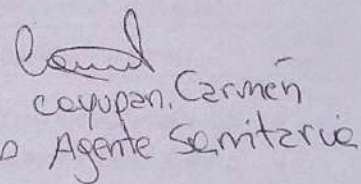 cayupan, Carmen
Agente Sanitaria